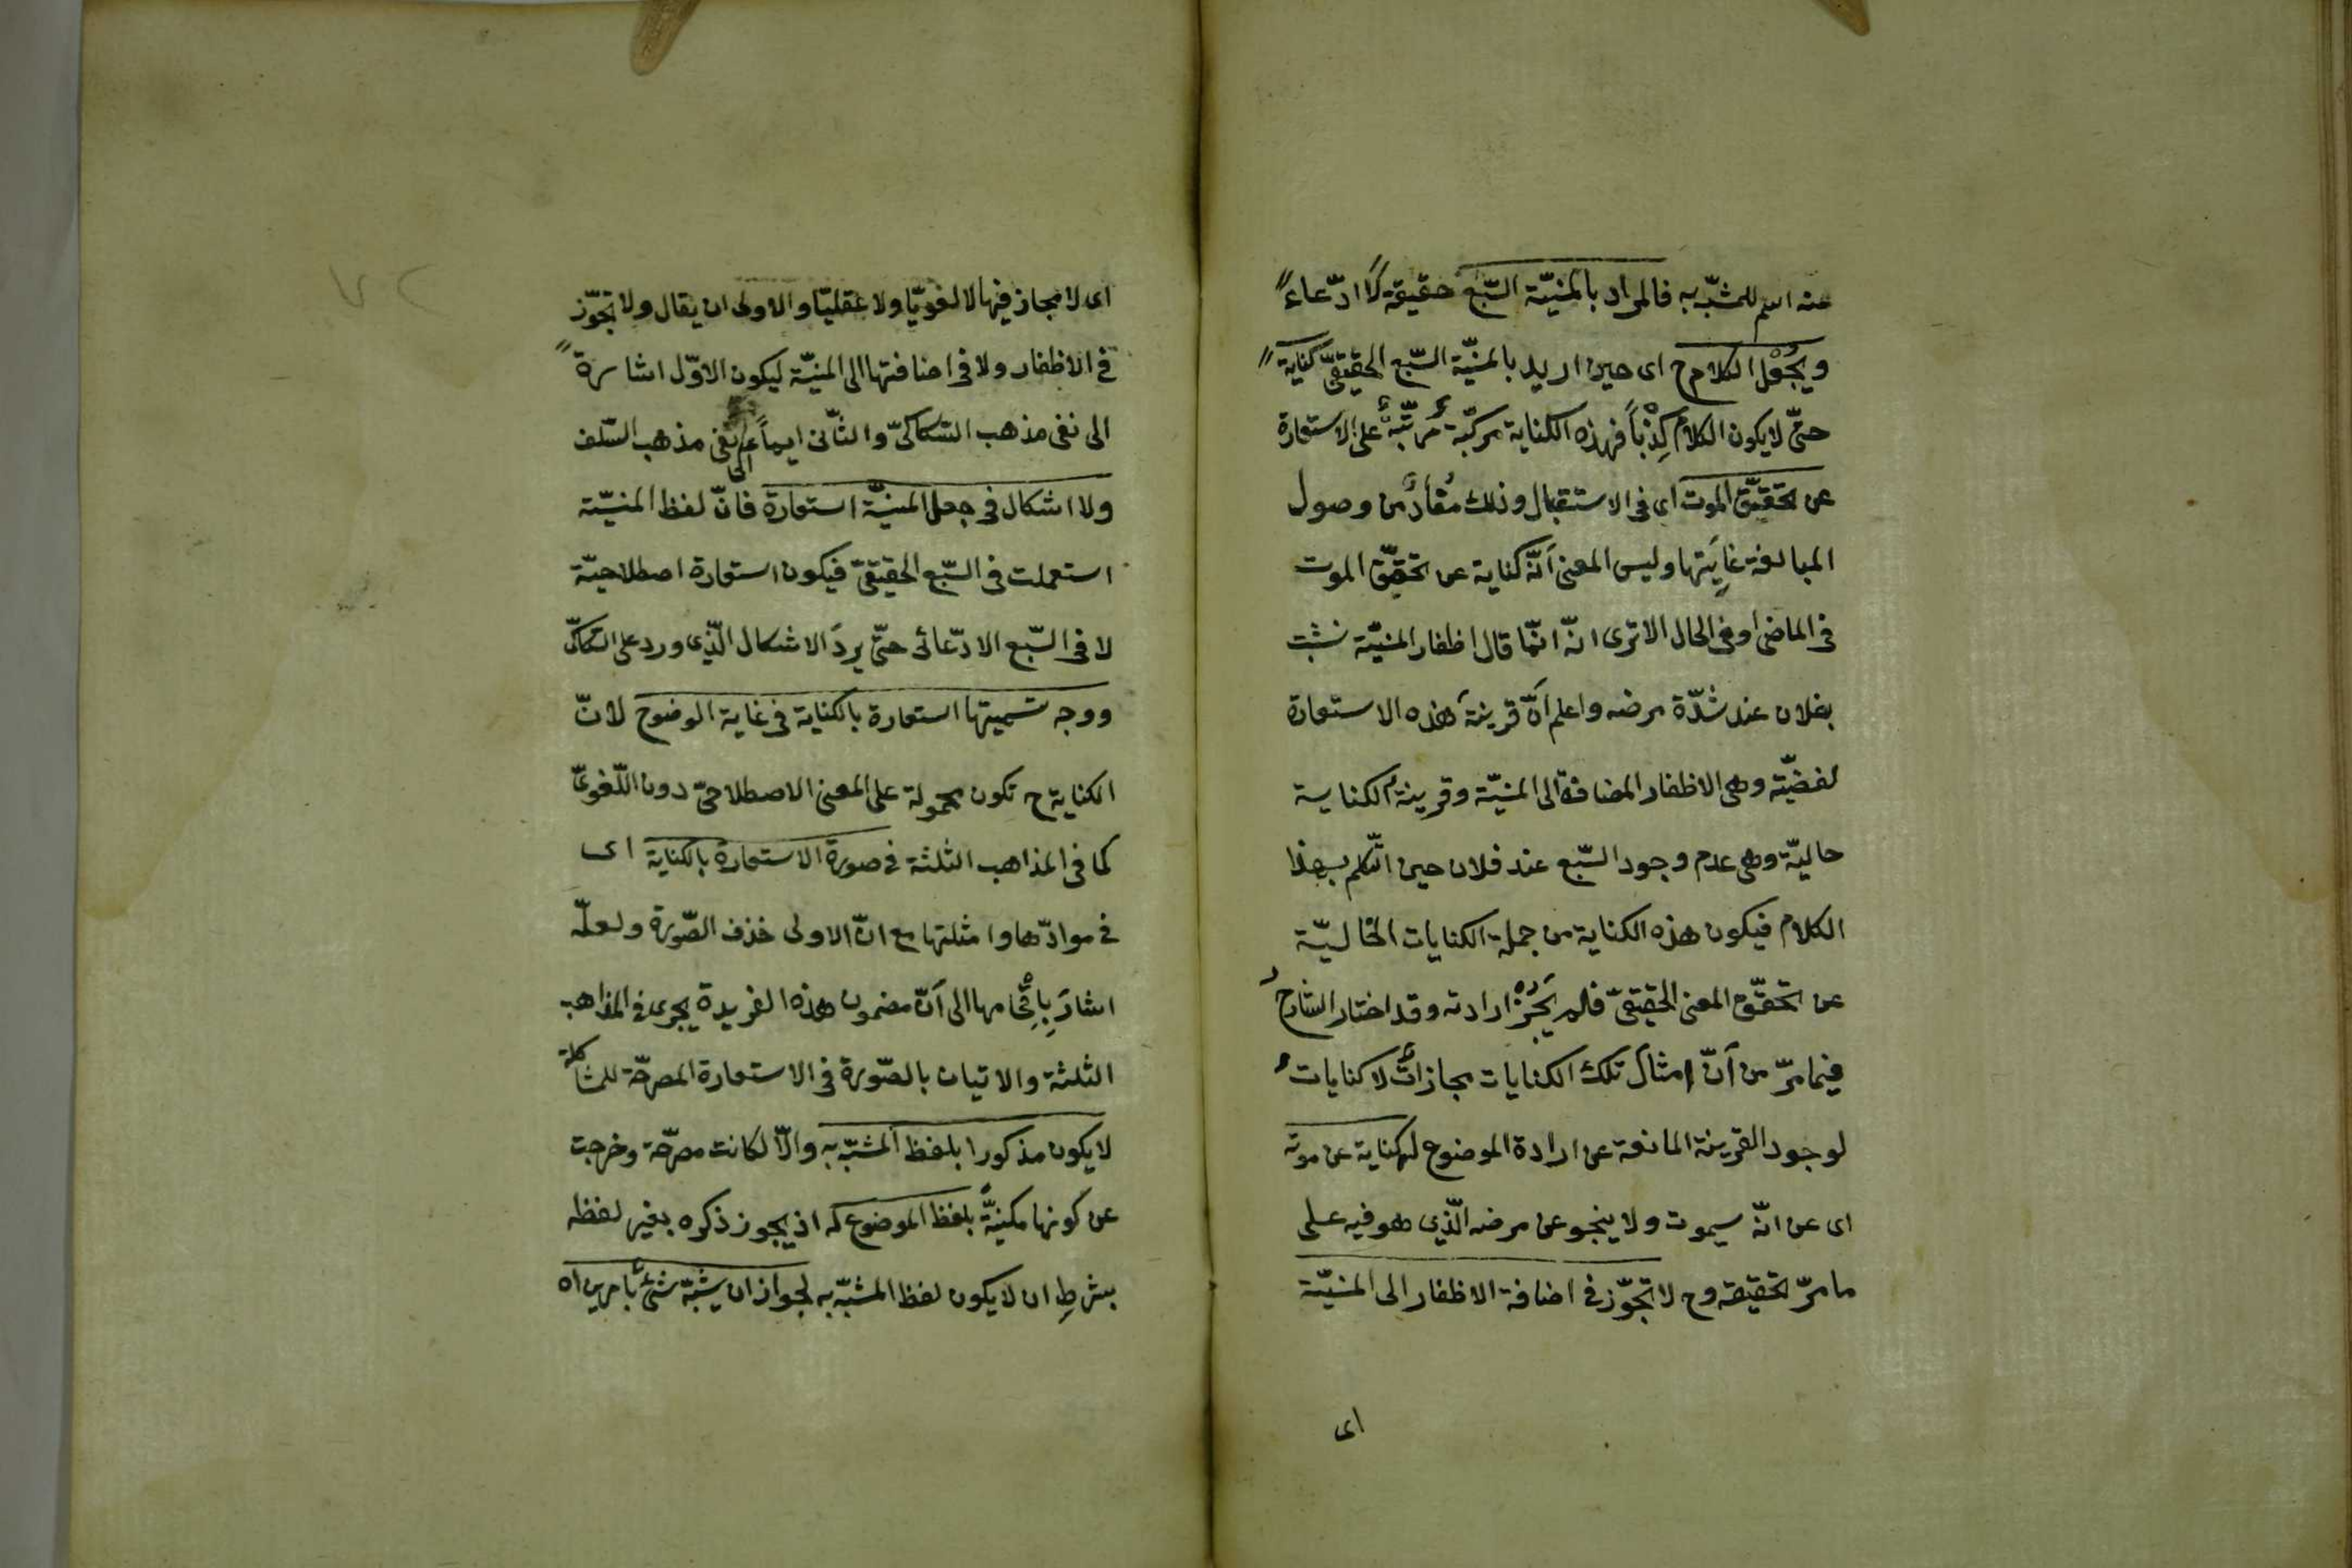 عنه اسم للمشبّه به فالمراد بالمنيّة السّبع حقيقة لا ادّعاءً
ويُجْعَل الكلام ح اى حين اريد بالمنيّة السّبع الحقيقىّ كناية
حتّى لا يكون الكلام كِذْباً فهذه الكناية مركبّة مرتّبةٌ على الاستعارة
عن تحقّق الموت اى فى الاستقبال وذلك مُفادٌ من وصول
المبالغة غايتها وليس المعنى أنّه كناية عن تحقّق الموت
فى الماضى او فى الحال الا ترى انّه انّما قال اظفار المنيّة نشبت
بفلان عند شدّة مرضه واعلم أنّ قرينة هذه الاستعارة
لفضيّة وهى الاظفار المضافة الى المنيّة وقرينة الكناية
حاليّة وهى عدم وجود السّبع عند فلان حين التكلم بهذا
الكلام فيكون هذه الكناية من جملة الكنايات الخاليّة
عن تحقّق المعنى الحقيقىّ فلم يَجُزْ ارادته وقد اختار الشّارح
فيما مرّ من أنّ امثال تلك الكنايات مجازاتٌ لا كنايات
لوجود القرينة المانعة عن ارادة الموضوع له كناية عن موته
اى عن انّه سيموت ولا ينجو عن مرضه الّذى هو فيه على
ما مرّ تحقيقه وح لا تجوّز فى اضافة الاظفار الى المنيّة
اى
اى لا مجاز فيها لا لغويّا ولا عقليّا والاولى ان يقال ولا تجوّز
فى الاظفار ولا فى اضافتها الى المنيّة ليكون الاوّل اشارة
الى نفى مذهب السّكاكىّ والثّانى ايماءً الى نفى مذهب السّلف
ولا اشكال فى جعل المنيّة استعارة فانّ لفظ المنيّة
استعملت فى السّبع الحقيقىّ فيكون استعارة اصطلاحيّة
لا فى السّبع الادّعائى حتّى يردَ الاشكال الّذى ورد على السّكاكىّ
ووجه تسميتها استعارة بالكناية فى غاية الوضوح لانّ
الكناية ح تكون محمولة على المعنى الاصطلاحىّ دون اللّغوىّ
كما فى المذاهب الثلثة فى صورة الاستعارة بالكناية اى
فى موادّها وامثلتها مع انّ الاولى حذف الصّورة ولعلّه
اشارَ بِإِقْحامها الى أنّ مضمون هذه الفريدة يجرى فى المذاهب
الثلثة والاتيان بالصّورة فى الاستعارة المصرحّة للمشاكلة
لا يكون مذكورا بلفظ المشبّه به والّا لكانت مصرحّة وخرجت
عن كونها مكنيّةً بلفظ الموضوع له اذ يجوز ذكره بغير لفظه
بشرطِ ان لا يكون لفظ المشبّه به لجواز ان يشبّه شئٌ بامرين اه